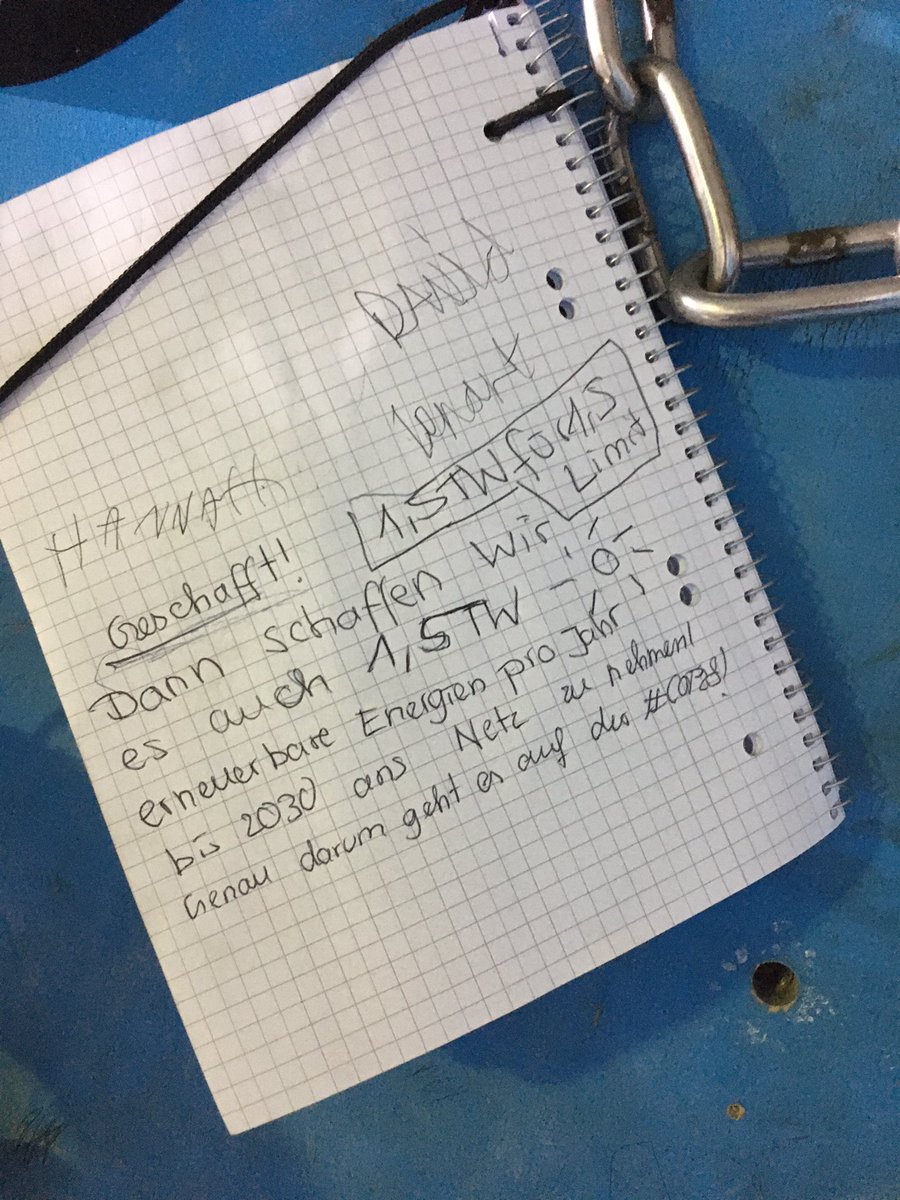 DAVID
Lenart
HANNAH
1,5TW for 1,5
Limit
Geschafft!
Dann schaffen wir
es auch 1,5TW
erneuerbare Energien pro Jahr
bis 2030 ans Netz zu nehmen!
Genau darum geht es auf der #COP28!